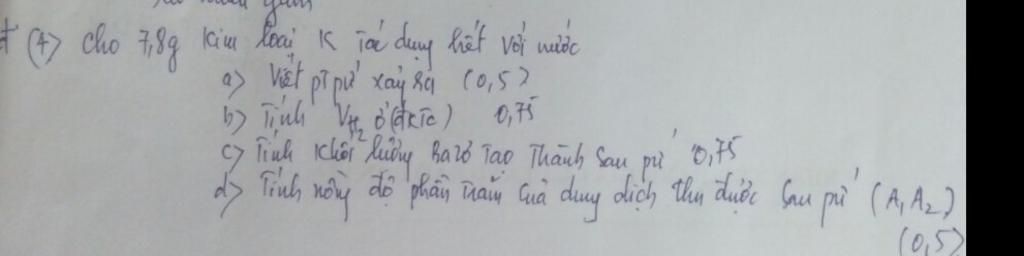 (4) Cho 7,8g Kim loại K Tác dụng hết với nước
a) Viết pt pứ xảy ra (0,5)
b) Tính VH2 ở (đKTC) 0,75
c) Tính Khối lượng Bazơ Tạo Thành Sau pứ 0,75
d) Tính nồng độ phần trăm của dung dịch thu được Sau pứ (A1A2)
(0,5)